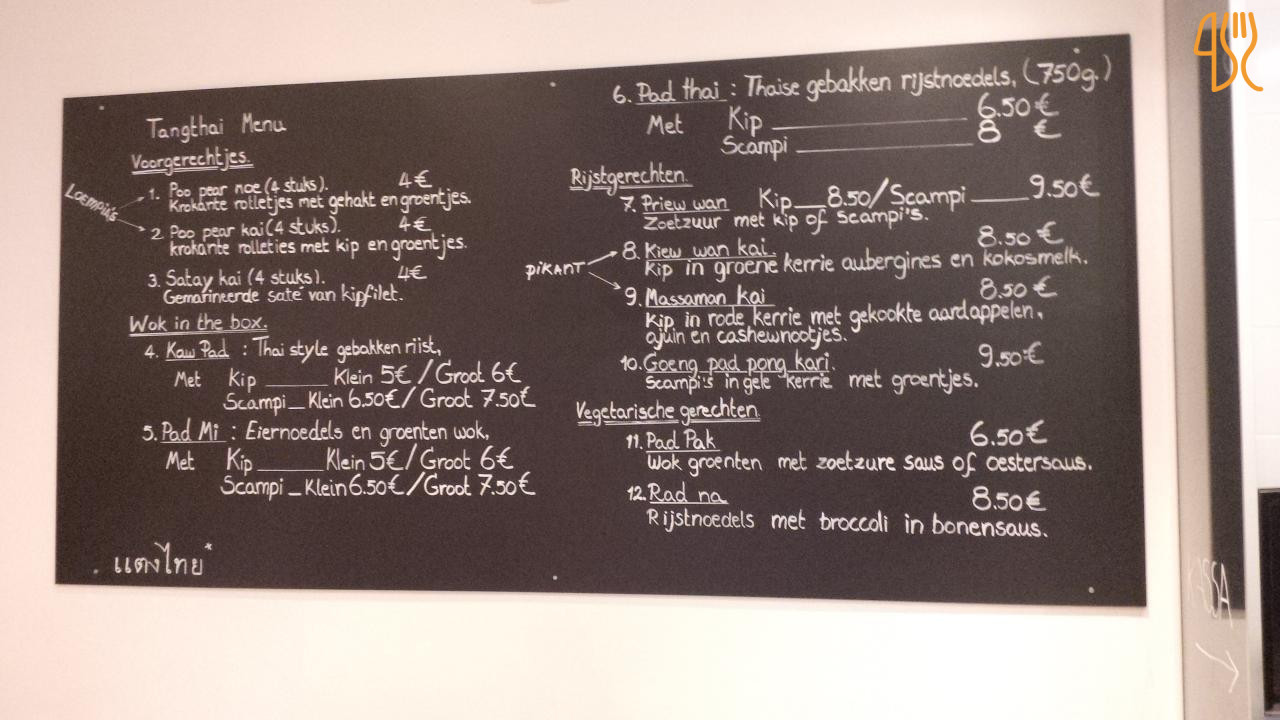 Tangthai Menu
Voorgerechtjes.
Loempia's
1. Poo pear noe (4 stuks). 4€
Krokante rolletjes met gehakt en groentjes.
2. Poo pear kai (4 stuks). 4€
krokante rolletjes met kip en groentjes.
3. Satay kai (4 stuks). 4€
Gemarineerde saté van kipfilet.
Wok in the box.
4. Kaw Pad : Thai style gebakken rijst,
Met Kip ____ Klein 5€ / Groot 6€
Scampi _ Klein 6.50€ / Groot 7.50€
5. Pad Mi : Eiernoedels en groenten wok,
Met Kip ____ Klein 5€ / Groot 6€
Scampi _ Klein 6.50€ / Groot 7.50€
แตงไทย*
6. Pad thai : Thaise gebakken rijstnoedels, (750g.)
Met Kip ____ 6.50€
Scampi ____ 8 €
Rijstgerechten.
7. Priew wan Kip __ 8.50 / Scampi ____ 9.50€
Zoetzuur met kip of scampi's.
PIKANT
8. Kiew wan kai. 8.50€
Kip in groene kerrie aubergines en kokosmelk.
9. Massaman kai 8.50€
Kip in rode kerrie met gekookte aardappelen,
ajuin en cashewnootjes.
10. Goeng pad pong kari. 9.50€
Scampi's in gele kerrie met groentjes.
Vegetarische gerechten.
11. Pad Pak 6.50€
Wok groenten met zoetzure saus of oestersaus.
12. Rad na 8.50€
Rijstnoedels met broccoli in bonensaus.
KASSA